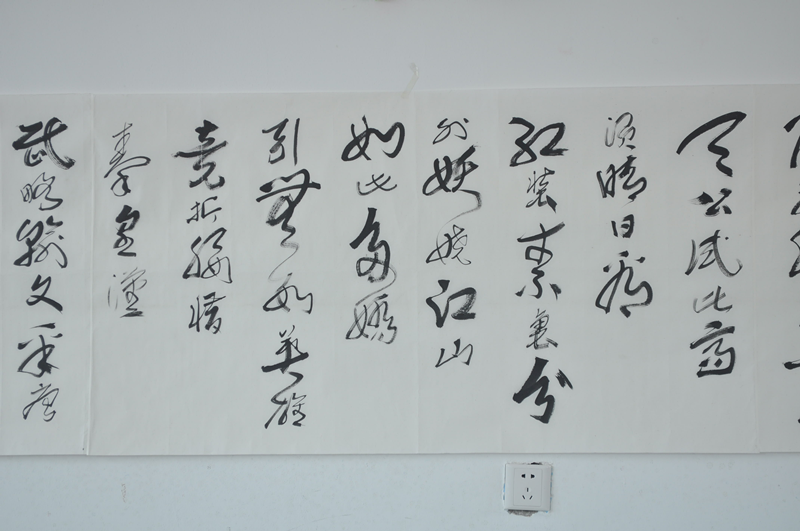 天公试比高
须晴日看
红装素裹分
外妖娆江山
如此多娇
引無数英雄
竞折腰惜
秦皇漢
武略輸文采唐